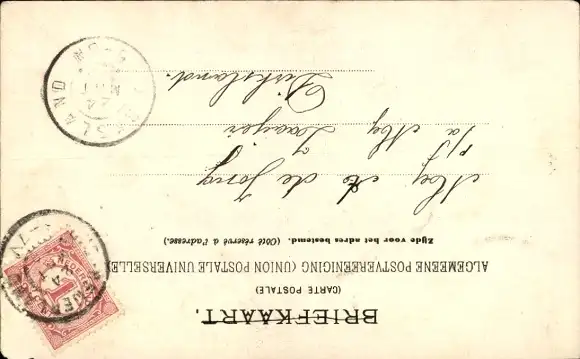 BRIEFKAART.
(CARTE POSTALE)
ALGEMEENE POSTVEREENIGING (UNION POSTALE UNIVERSELLE)
Zijde voor het adres bestemd. (Côté réservé à l'adresse.)
Mej de Jong
p/a Mej
Dirksland.
DIRKSLAND
24
1
NEDERLAND